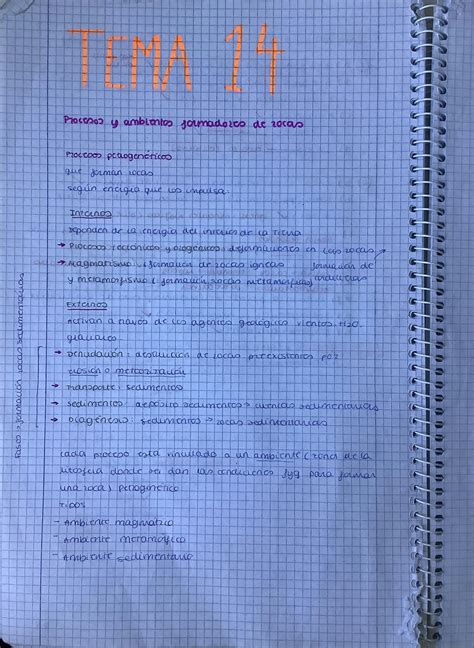 TEMA 14
Procesos y ambientes formadores de rocas
Procesos petrogenéricos
que forman rocas
según energia que los impulsa.
Internos
dependen de la energia del interior de la Tierra
→ Procesos tectónicos y orogénicos: deformaciones en las rocas →
→ Magmatismo (formación de rocas igneas formación de
y metamorfismo (formación rocas metamorficas) cordilleras
Externos
activan a traves de los agentes geológicos vientos H2O
glaciares
→ denudación: destrucción de rocas preexistentes por
erosión o meteorización
→ transporte: sedimentos
→ sedimentos: depósito sedimentos → cuencas sedimentarias
→ diagénesis: sedimentos → rocas sedimentarias
Pasos → formación rocas sedimentarias
cada proceso esta vinculado a un ambiente (zona de la
litosfera donde se dan las condiciones fyq para formar
una roca) petrogénico
TIPOS
- Ambiente magmatico
- Ambiente metamorfico
- Ambiente sedimentario